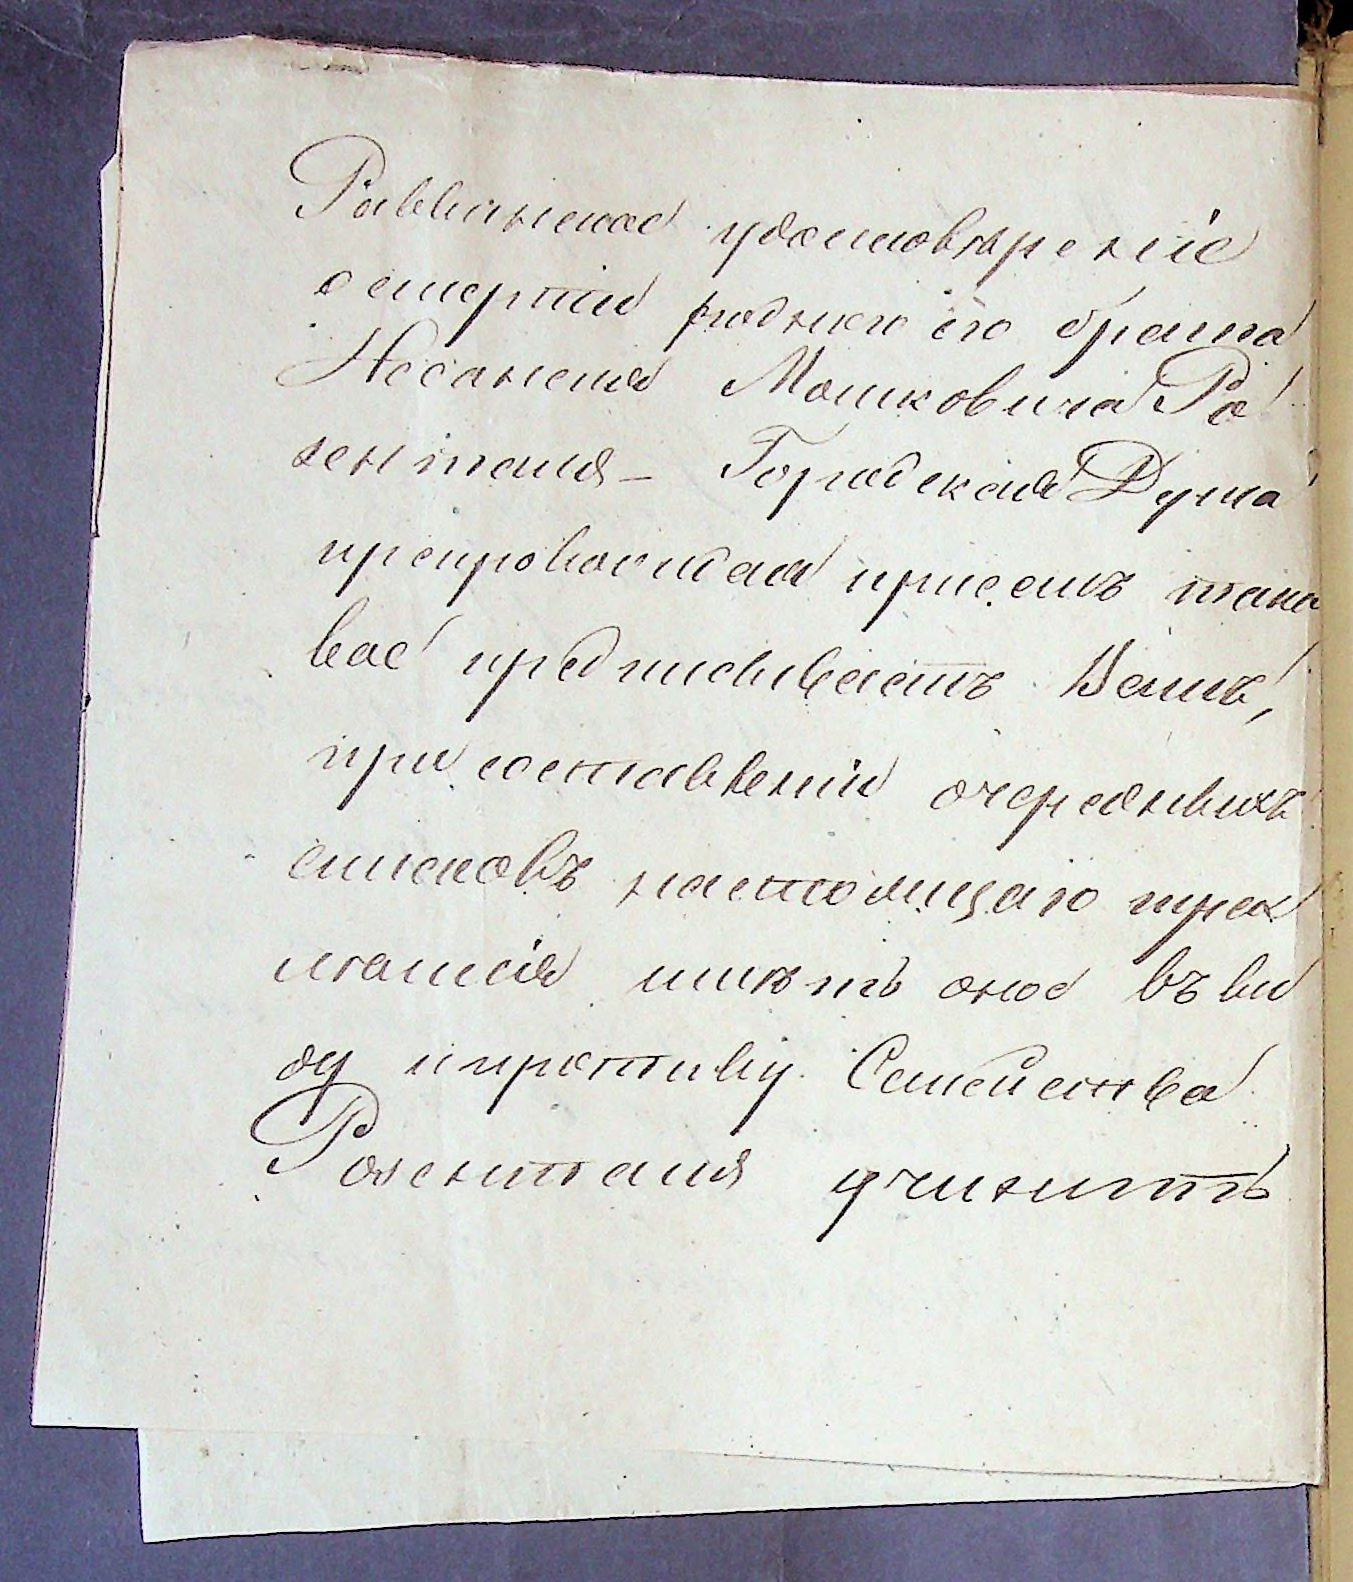 Раввинское удостовѣреніе
о смерти роднаго его брата
Несанеля Мошковича Ро
зенталя – Городская Дума
препровождая присемъ тако
вое предписываетъ Вамъ,
при составленіи очередныхъ
списковъ настоящаго трех
лѣтія имѣть оное въ ви
ду и противу Семейства
Розенталя учинить